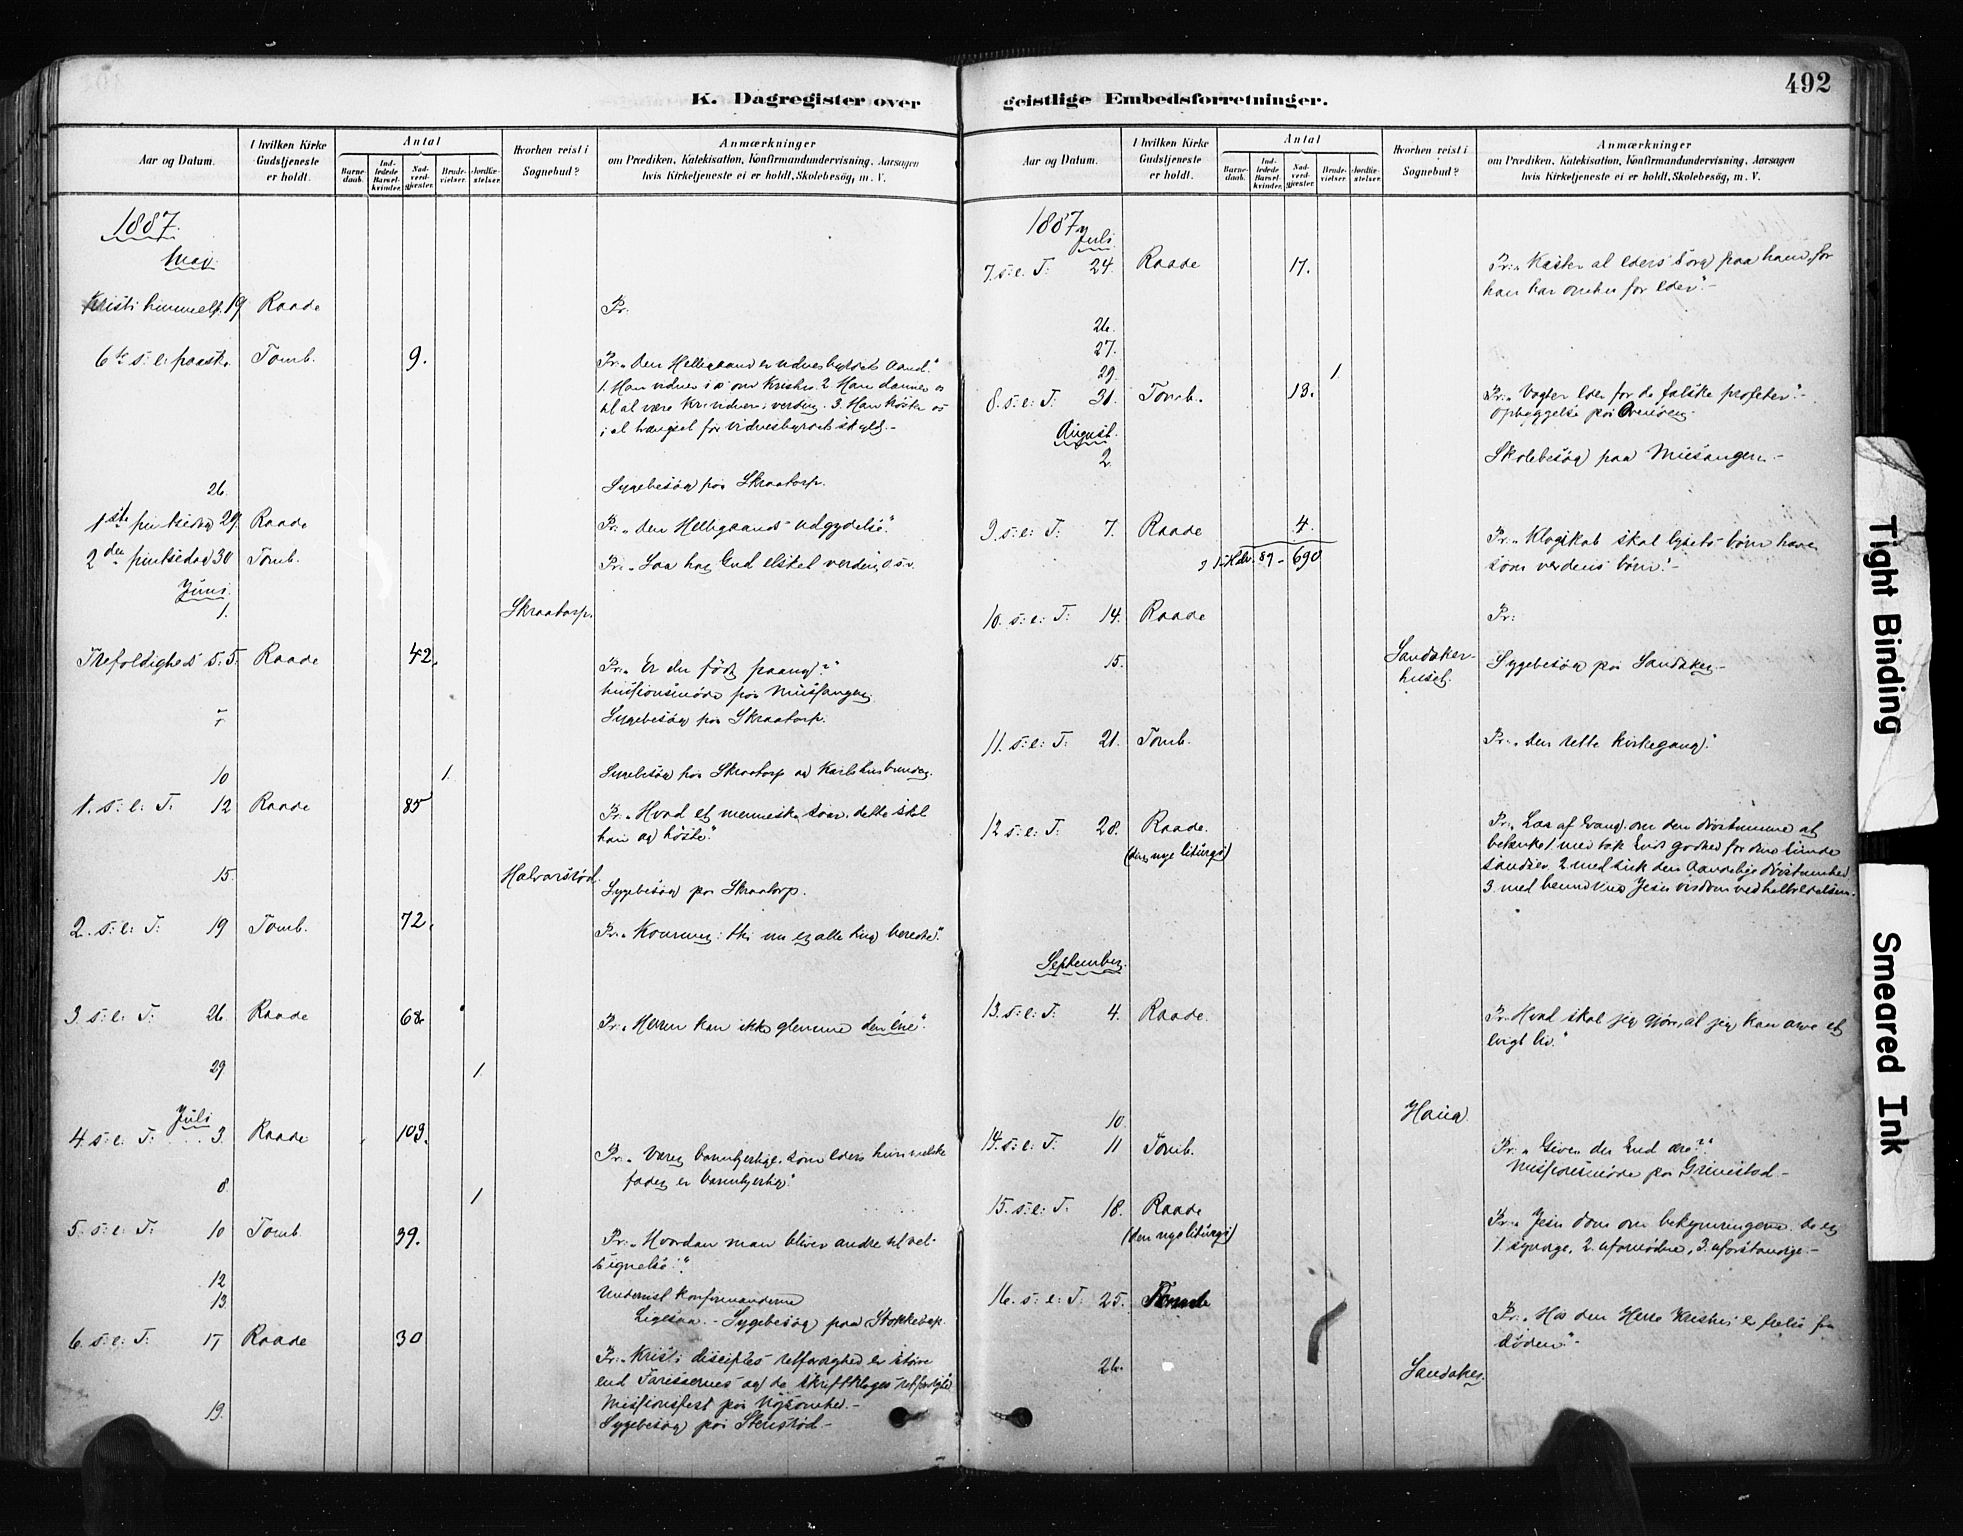 492
K. Dagregister over geistlige Embedsforretninger.
Aar og Datum.
I hvilken Kirke Gudstjeneste er holdt.
Antal
Barnedaab.
Indledede Barselkvinder.
Nadverdgjester.
Brudevielser.
Jordfæstelser.
Hvorhen reist i Sognebud?
Anmærkninger
om Prædiken, Katekisation, Konfirmandundervisning, Aarsagen
hvis Kirketjeneste ei er holdt, Skolebesøg, m. V.
1887.
Mai
Kristi himmelf. 19 Raade Pr:
6te s: e: paaske Tomb. 9. Pr: "Den Helligaand er vidnesbyrdets Aand."
1. Han vidner i os om Kristus. 2 Han danner os
til at være Kr: vidner i verden. 3. Han trøster os
i al trængsel for vidnesbyrdets skyld.-
26. Sygebesøg paa Skraatorp.
1ste pintsedag 29. Raade Pr: "Den Helligaands udgydelse."
2den pintsedag 30 Tomb. Pr: "Saa har Gud elsket verden, o s v.
Juni
1. Skraatorp.
Trefoldigheds s. 5. Raade 42. Pr: "Er du født paany?"
missionsmøde paa Missangen
Sygebesøg paa Skraatorp.
10 1. Sygebesøg paa Skraatorp og Karlshus
1. s: e: T. 12 Raade 85 Pr: "Hvad et menneske saar, dette skal
han og høste."
15. Halvorsrød. Sygebesøg paa Skraatorp.
2. s: e: T. 19 Tomb. 72. Pr: "Kommer: thi nu er alle ting beredte."
3. s: e: T. 26. Raade 68 Pr: "Herren kan ikke glemme den ene".
29 1
Juli
4. s: e: T. 3. Raade 103. Pr: "Værer barmhjertige, som eders himmelske
fader er barmhjertig."
8. 1
5. s: e: T. 10 Tomb 39. Pr: "Hvordan man bliver andre til velsignelse".
12 Undervist konfirmanderne
13. Ligesaa. - Sygebesøg paa
6. s: e: T. 17 Raade 30 Pr: "Kristi disciples retfærdighed er større
end Farisæernes og de skriftkloges retfærdighed
Missionsfest paa
19. Sygebesøg paa Stensrød -
Aar og Datum.
I hvilken Kirke Gudstjeneste er holdt.
Antal
Barnedaab.
Indledede Barselkvinder.
Nadverdgjester.
Brudevielser.
Jordfæstelser.
Hvorhen reist i Sognebud?
Anmærkninger
om Prædiken, Katekisation, Konfirmandundervisning, Aarsagen
hvis Kirketjeneste ei er holdt, Skolebesøg, m. V.
1887
Juli
7. s: e: T. 24. Raade 17. Pr: "Kaster al eders sorg paa ham, for
han har omhu for eder."-
26.
27.
29. 1
8. s: e: T. 31. Tomb. 13. Pr: "Vogter eder for de falske profeter."-
Opbyggelse paa
August.
2. Skolebesøg paa Missangen -
9. s: e: T. 7. Raade 4. Pr: "Klogskab skal lysets børn have
som verdens børn."-
690
10. s: e: T. 14. Raade Pr:
15. Sandakerhuset. Sygebesøg paa Sandaker.-
11. s: e: T. 21. Tomb. Pr: "Den rette kirkegang."
12 s: e: T. 28. Raade. (den nye liturgi) Pr: "Lær af Evang. om den døvstumme at
3. med Jesu visdom ved helbredelsen.
September.
13. s: e: T. 4. Raade. Pr: "Hvad skal jeg gjøre, at jeg kan arve et
evigt liv."
10. Haug.
14. s: e: T. 11 Tomb. Pr: "Giver du Gud ære?"
Missionsmøde paa Grimestad -
15. s: e: T. 18. Raade (den nye liturgi) Pr: "Jesu dom om bekymringerne: de er
1. syndige, 2. ufornødne, 3. uforstandige.-
16. s: e: T. 25. Pr: "Hos den Herre Kristus er frelse fra
døden".
26. Sandaker.
Tight Binding
Smeared Ink